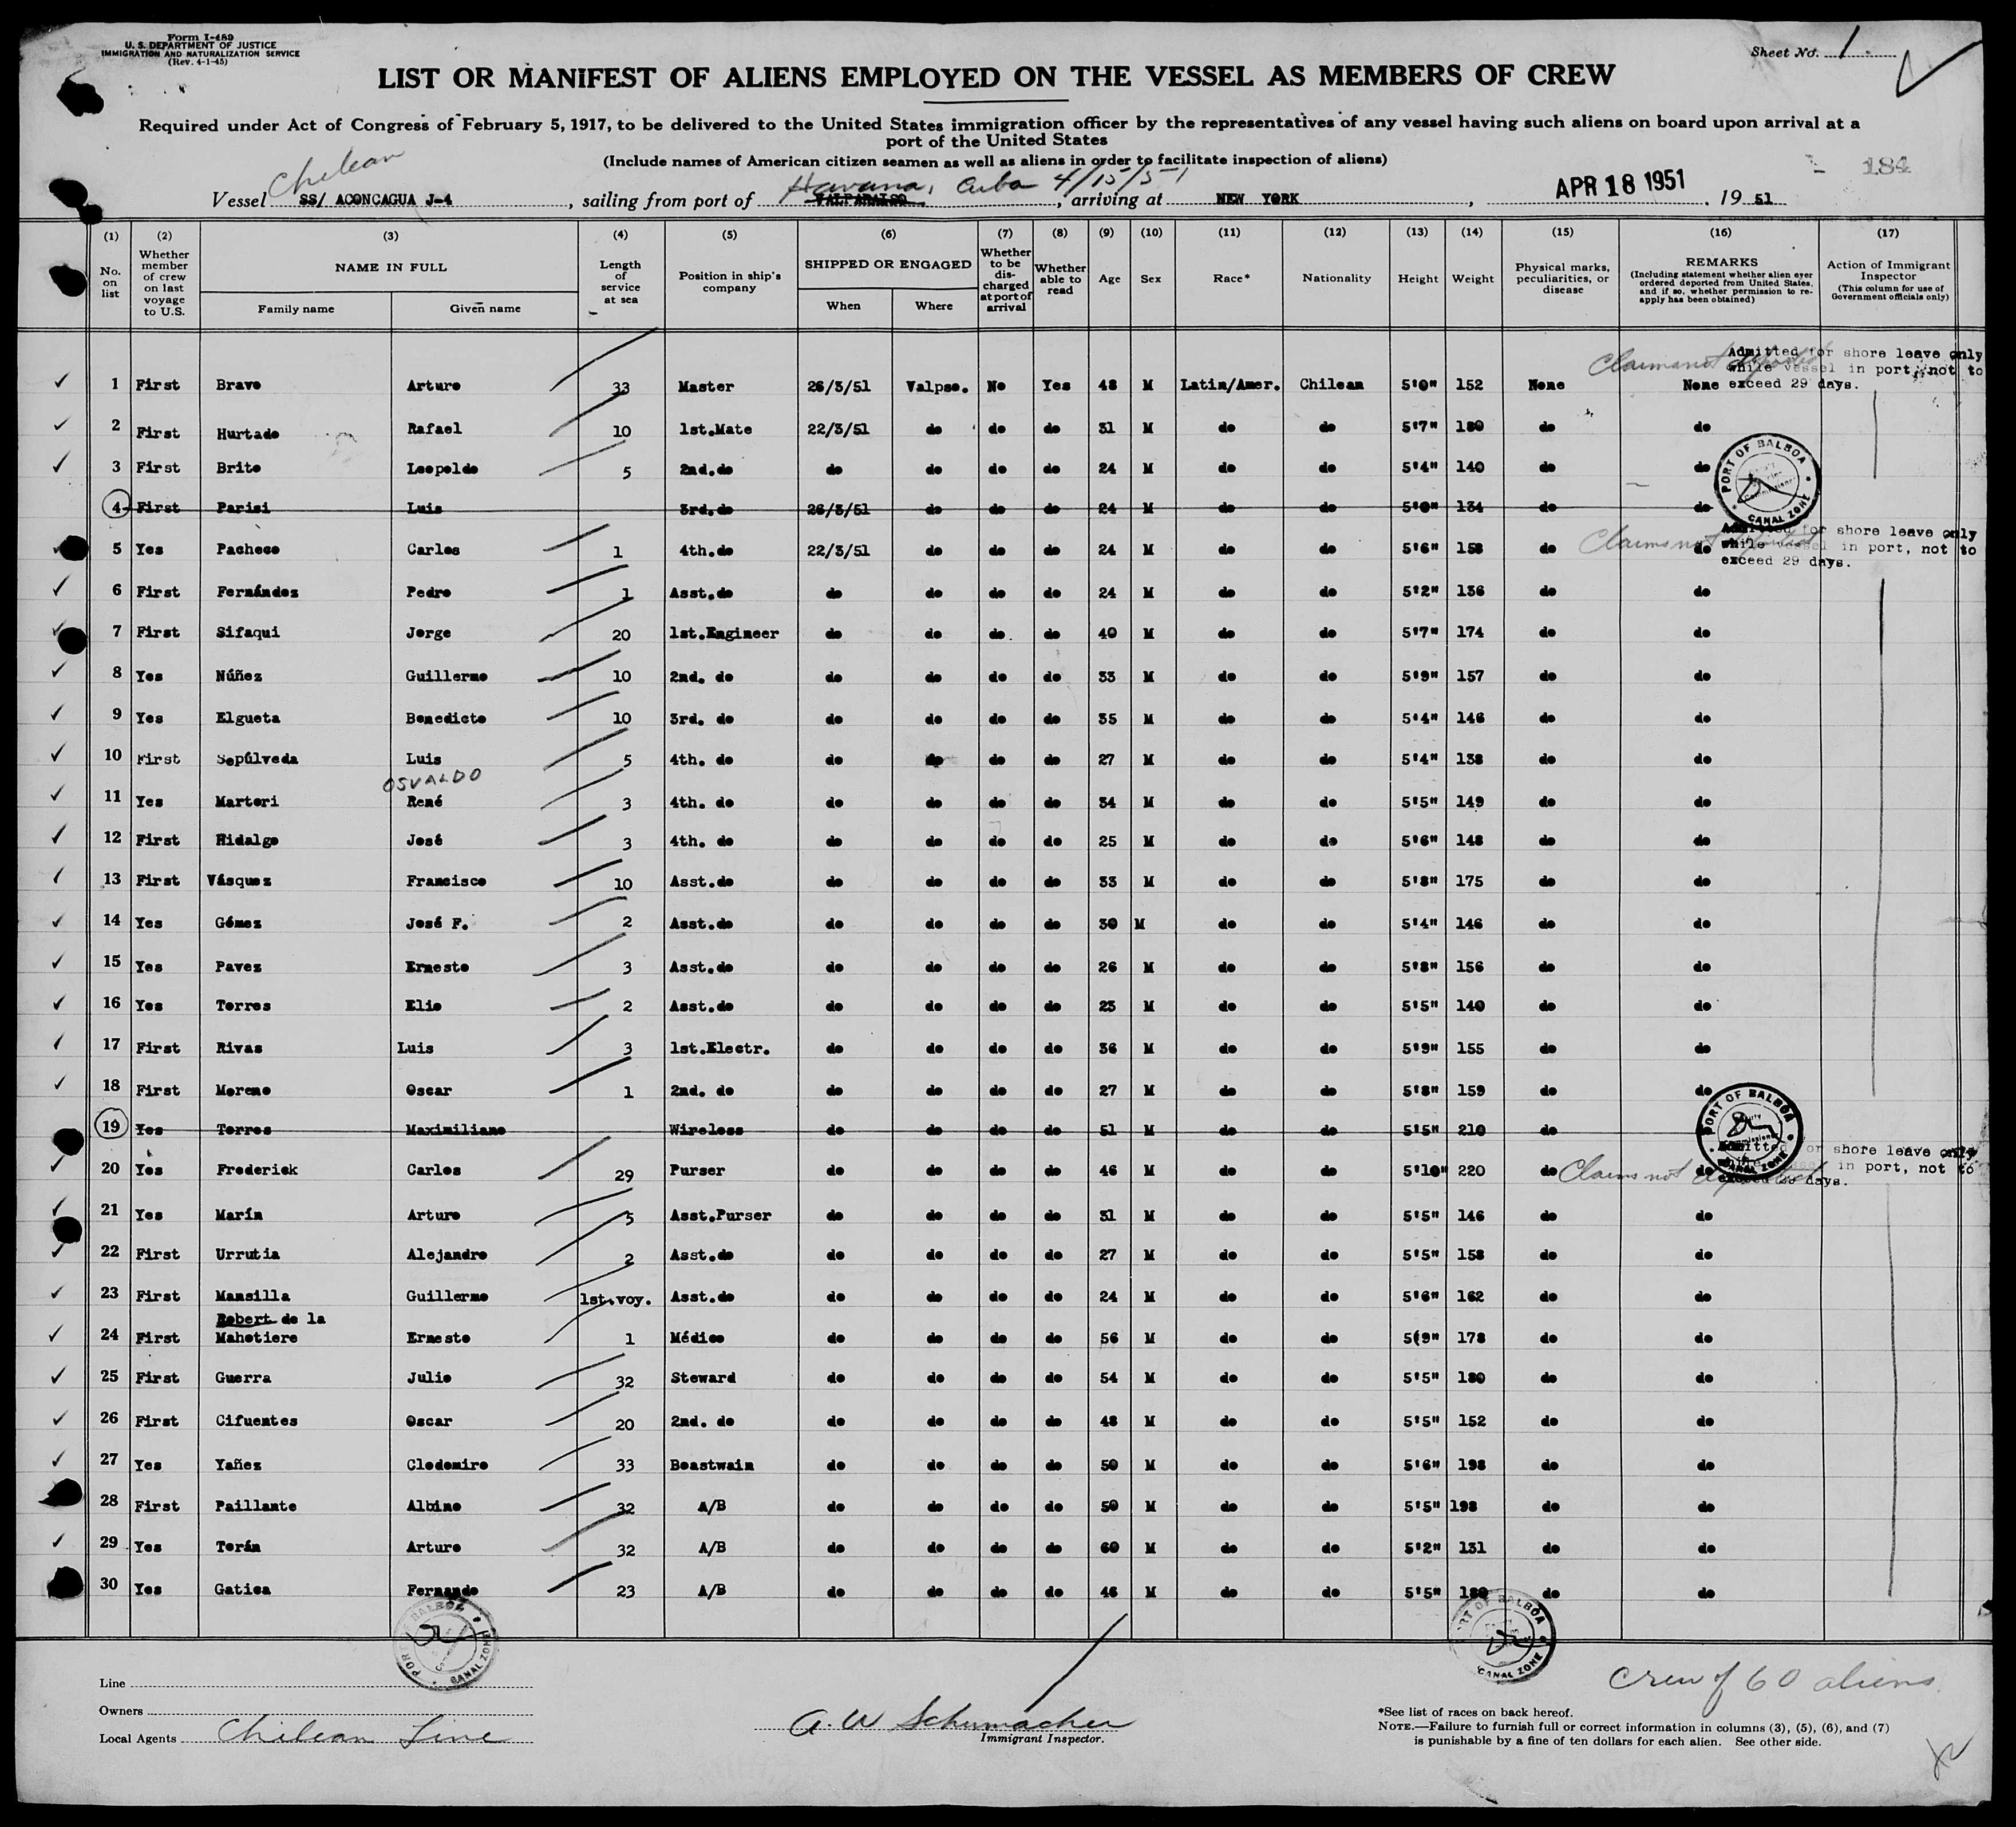 Form I-489
U. S. DEPARTMENT OF JUSTICE
IMMIGRATION AND NATURALIZATION SERVICE
(Rev. 4-1-45)
Sheet No. 1
LIST OR MANIFEST OF ALIENS EMPLOYED ON THE VESSEL AS MEMBERS OF CREW
Required under Act of Congress of February 5, 1917, to be delivered to the United States immigration officer by the representatives of any vessel having such aliens on board upon arrival at a
port of the United States
(Include names of American citizen seamen as well as aliens in order to facilitate inspection of aliens)
184
Chilean Havana, Cuba 4/15/51
Vessel SS/ ACONCAGUA J-4, sailing from port of VALPARAISO, arriving at NEW YORK, APR 18 1951, 19 51
(1) No. on list
(2) Whether member of crew on last voyage to U.S.
(3) NAME IN FULL Family name Given name
(4) Length of service at sea
(5) Position in ship's company
(6) SHIPPED OR ENGAGED When Where
(7) Whether to be discharged at port of arrival
(8) Whether able to read
(9) Age
(10) Sex
(11) Race*
(12) Nationality
(13) Height
(14) Weight
(15) Physical marks, peculiarities, or disease
(16) REMARKS (Including statement whether alien ever ordered deported from United States, and if so, whether permission to reapply has been obtained)
(17) Action of Immigrant Inspector (This column for use of Government officials only)
Claims not deported Admitted for shore leave only
while vessel in port, not to
exceed 29 days.
1 First Bravo Arturo 33 Master 26/3/51 Valpso. No Yes 48 M Latin/Amer. Chilean 5'0" 152 None None
2 First Hurtado Rafael 10 1st.Mate 22/3/51 do do do 31 M do do 5'7" 180 do do
3 First Brito Leopoldo 5 2nd.do do do do do 24 M do do 5'4" 140 do do
PORT OF BALBOA CANAL ZONE
4 First Parisi Luis 3rd.do 26/3/51 do do do 24 M do do 5'0" 134 do do
Claims not deported Admitted for shore leave only
while vessel in port, not to
exceed 29 days.
5 Yes Pacheco Carlos 1 4th.do 22/3/51 do do do 24 M do do 5'6" 158 do do
6 First Fernández Pedro 1 Asst.do do do do do 24 M do do 5'2" 136 do do
7 First Sifaqui Jorge 20 1st.Engineer do do do do 40 M do do 5'7" 174 do do
8 Yes Núñez Guillermo 10 2nd. do do do do do 33 M do do 5'9" 157 do do
9 Yes Elgueta Benedicto 10 3rd. do do do do do 35 M do do 5'4" 146 do do
10 First Sepúlveda Luis 5 4th. do do do do do 27 M do do 5'4" 138 do do
OSVALDO
11 Yes Martori René 3 4th. do do do do do 34 M do do 5'5" 149 do do
12 First Hidalgo José 3 4th. do do do do do 25 M do do 5'6" 148 do do
13 First Vásquez Francisco 10 Asst.do do do do do 33 M do do 5'8" 175 do do
14 Yes Gómez José F. 2 Asst.do do do do do 30 M do do 5'4" 146 do do
15 Yes Pavez Ernesto 3 Asst.do do do do do 26 M do do 5'8" 156 do do
16 Yes Torres Elio 2 Asst.do do do do do 23 M do do 5'5" 140 do do
17 First Rivas Luis 3 1st.Electr. do do do do 36 M do do 5'9" 155 do do
18 First Moreno Oscar 1 2nd. do do do do do 27 M do do 5'8" 159 do do
PORT OF BALBOA CANAL ZONE
19 Yes Torres Maximiliano Wireless do do do do 51 M do do 5'5" 210 do
Claims not deported Admitted for shore leave only
while vessel in port, not to
exceed 29 days.
20 Yes Frederick Carlos 29 Purser do do do do 46 M do do 5'10" 220 do do
21 Yes Marín Arturo 5 Asst.Purser do do do do 31 M do do 5'5" 146 do do
22 First Urrutia Alejandro 2 Asst.do do do do do 27 M do do 5'5" 158 do do
23 First Mansilla Guillermo 1st.voy. Asst.do do do do do 24 M do do 5'6" 162 do do
Robert de la
24 First Mahotiere Ernesto 1 Médico do do do do 56 M do do 5(9" 178 do do
25 First Guerra Julio 32 Steward do do do do 54 M do do 5'5" 180 do do
26 First Cifuentes Oscar 20 2nd. do do do do do 48 M do do 5'5" 152 do do
27 Yes Yañez Clodomiro 33 Boastwain do do do do 50 M do do 5'6" 198 do do
28 First Paillante Albino 32 A/B do do do do 50 M do do 5'5" 198 do do
29 Yes Terán Arturo 32 A/B do do do do 60 M do do 5'2" 131 do do
30 Yes Gatica Fernando 23 A/B do do do do 46 M do do 5'5" 180 do do
PORT OF BALBOA CANAL ZONE
PORT OF BALBOA CANAL ZONE
Crew of 60 aliens.
Line
Owners
Local Agents Chilean Line
A. W Schumacher
Immigrant Inspector.
*See list of races on back hereof.
NOTE.—Failure to furnish full or correct information in columns (3), (5), (6), and (7)
is punishable by a fine of ten dollars for each alien. See other side.